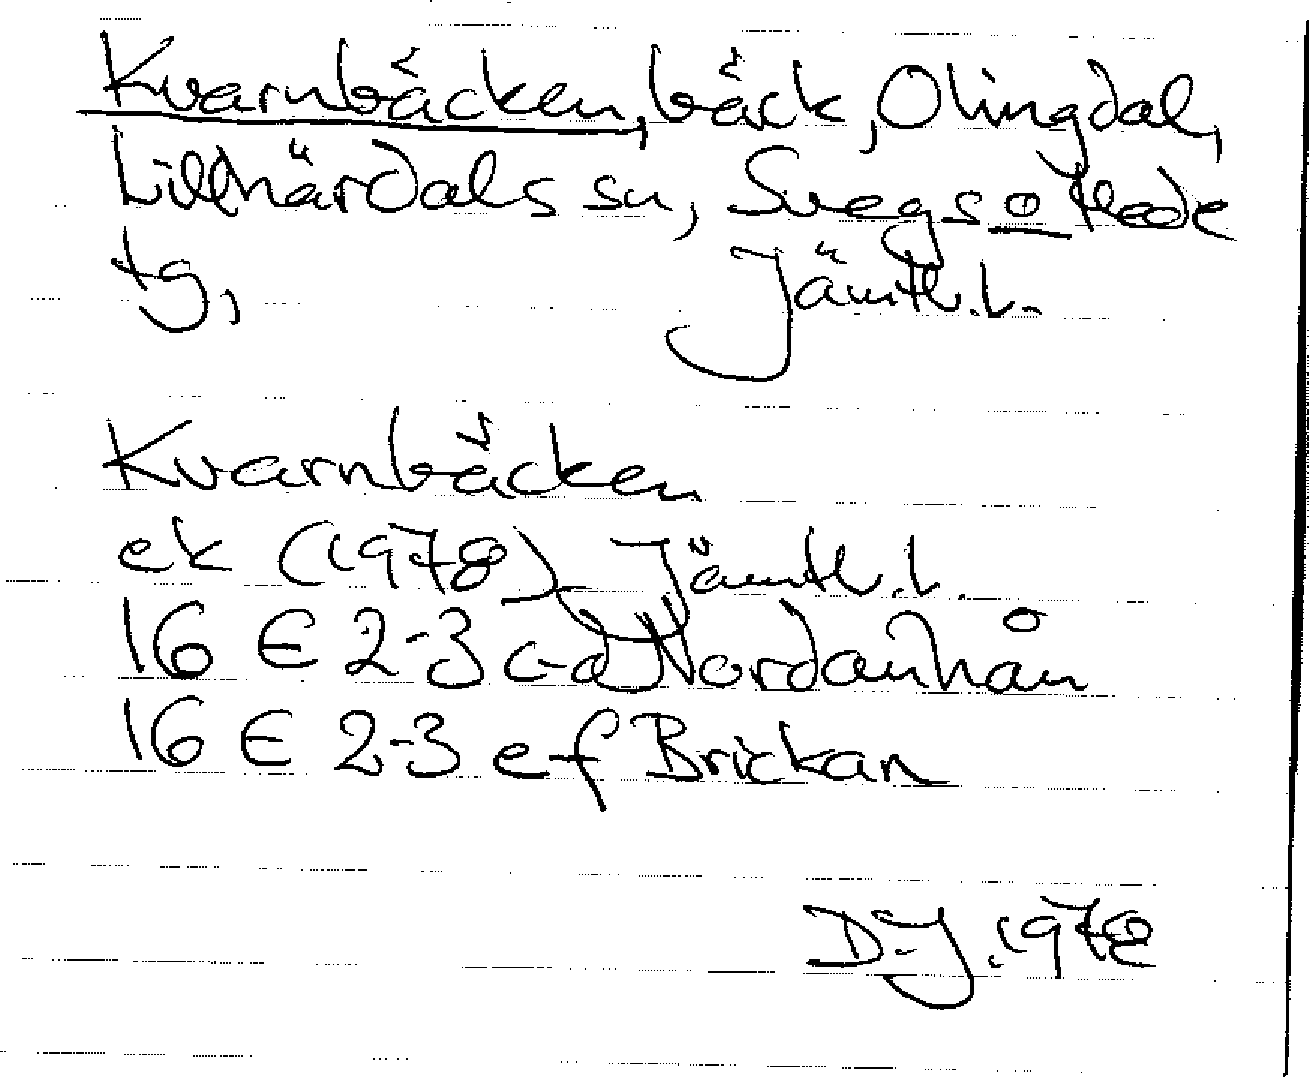 Kvarnbäcken, bäck, Olingdal,
Lillhärdals sn, Svegs o Hede
tg, Jämtl.l.
Kvarnbäcken
ek (1978) Jämtl.l.
16 E 2-3 c-d Nordanhån
16 E 2-3 e-f Brickan
D.J. 1978